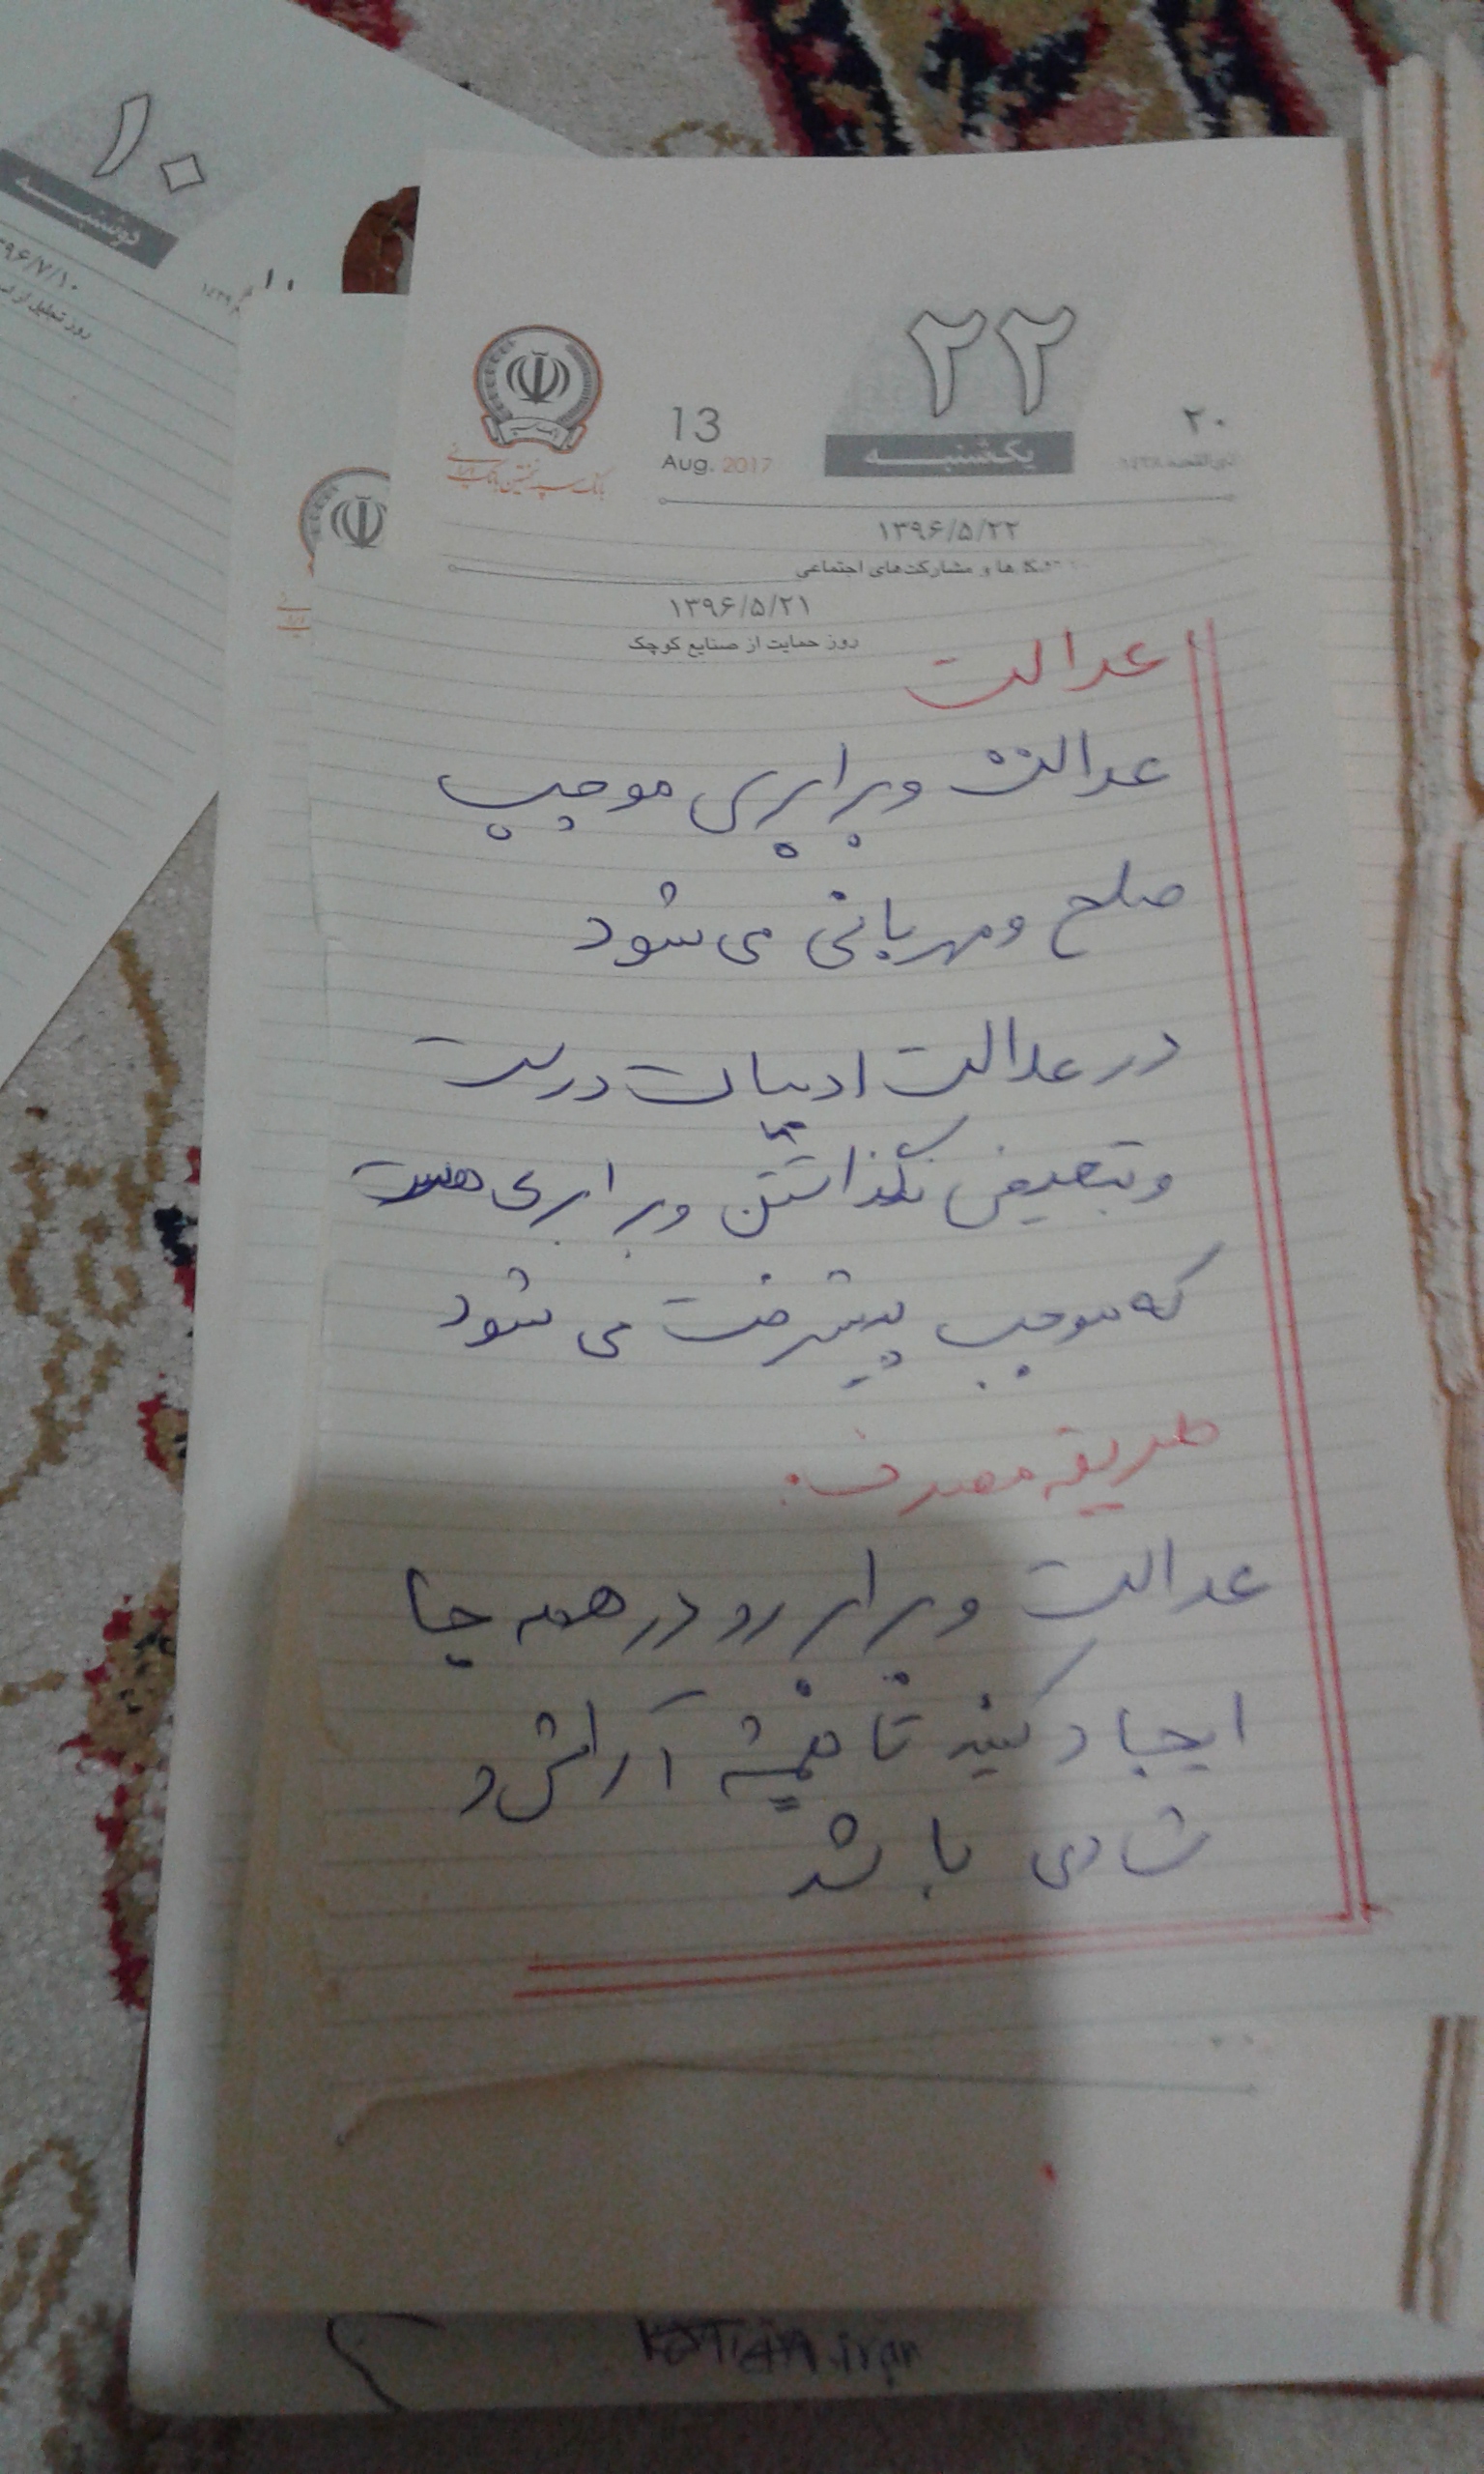 ۱۰
دوشنبه
۲۲
یکشنبه
۲۰
13
Aug. 2017
بانک سپه نخستین بانک ایرانی
۱۳۹۶/۵/۲۲
ها و مشارکت‌های اجتماعی
۱۳۹۶/۵/۲۱
روز حمایت از صنایع کوچک
عدالت
عدالت و برابری موجب
صلح و مهربانی می شود
در عدالت ادبیات درست
و تبعیض نگذاشتن و برابری هست
که موجب پیشرفت می شود
طریقه مصرف:
عدالت و برابر رو در همه جا
ایجاد کنید تا همیشه آرامش و
شادی باشد